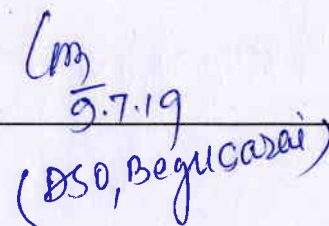 9.7.19
(DSO, Begusarai)